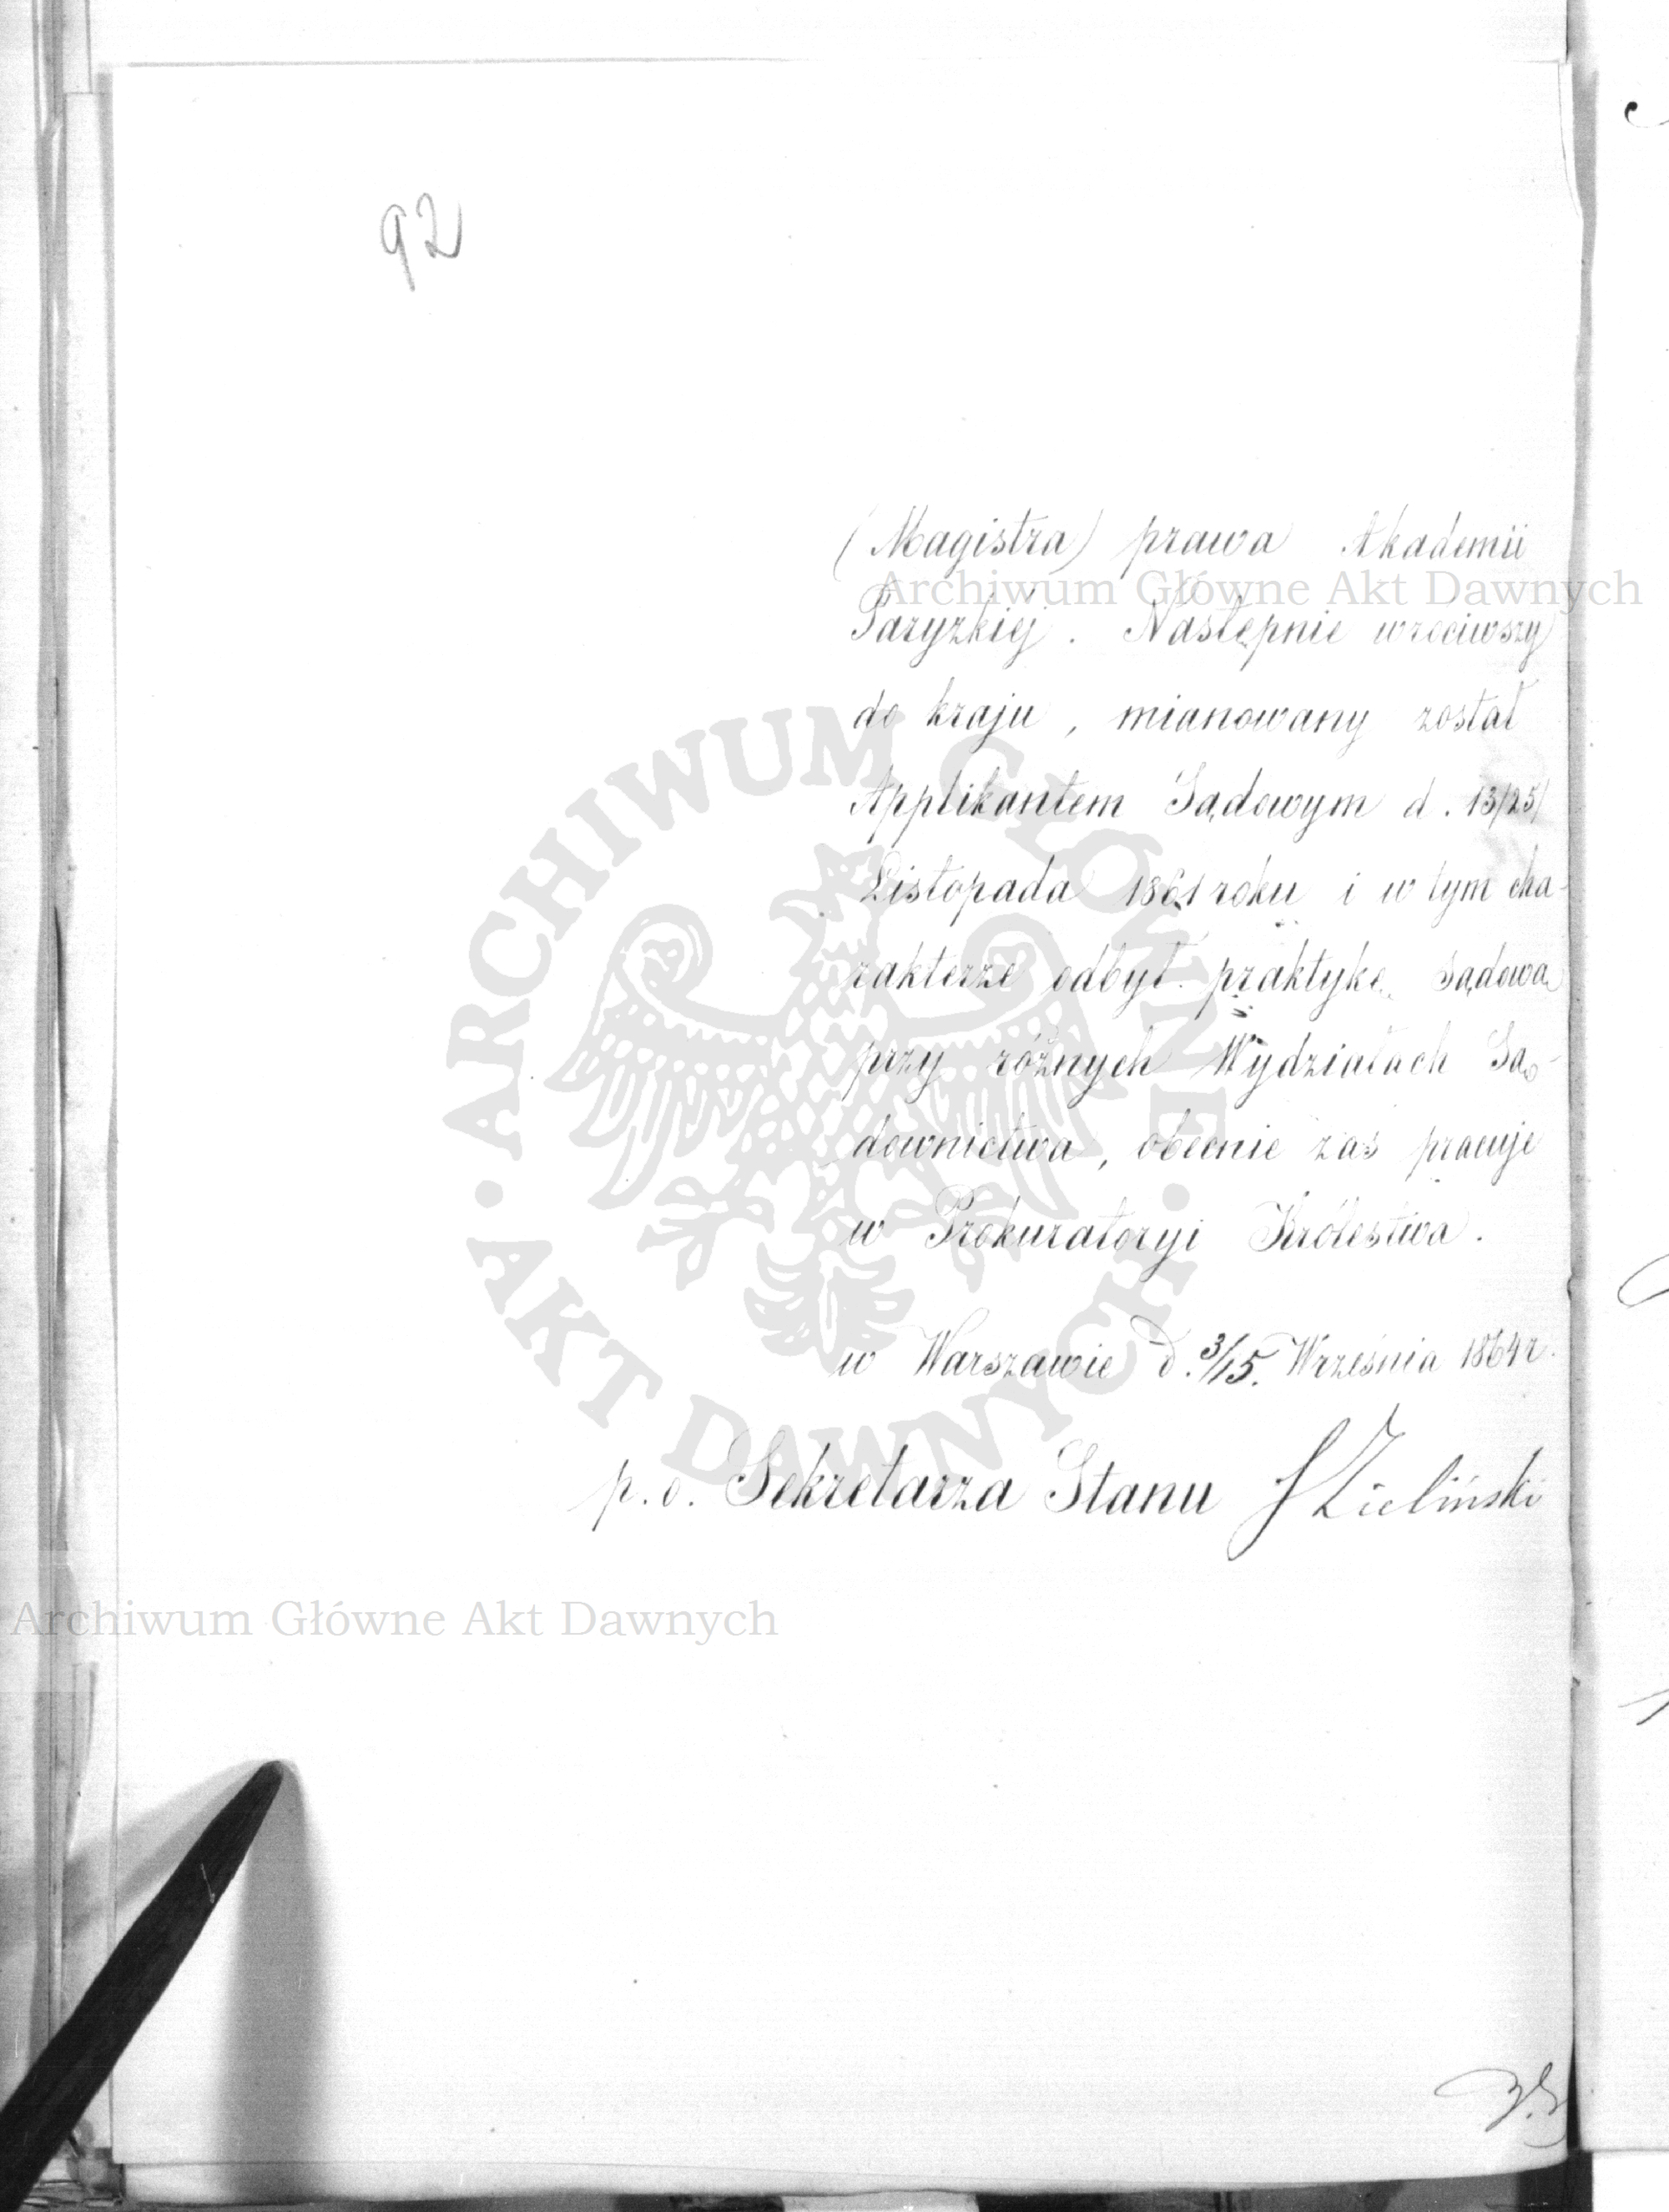 92
(Magistra) prawa Akademii
Paryzkiéj. Następnie wróciwszy
do kraju, mianowany został
Applikantem Sądowym d. 13/25/
Listopada 1861 roku i w tym cha-
rakterze odbył praktykę sądową
przy różnych Wydziałach Są-
downictwa, obecnie zaś pracuje
w Prokuratoryi Królestwa.
w Warszawie d. 3/15. Września 1864 r.
p. o. Sekretarza Stanu Zieliński
Archiwum Główne Akt Dawnych
ARCHIWUM GŁÓWNE · AKT DAWNYCH ·
Archiwum Główne Akt Dawnych